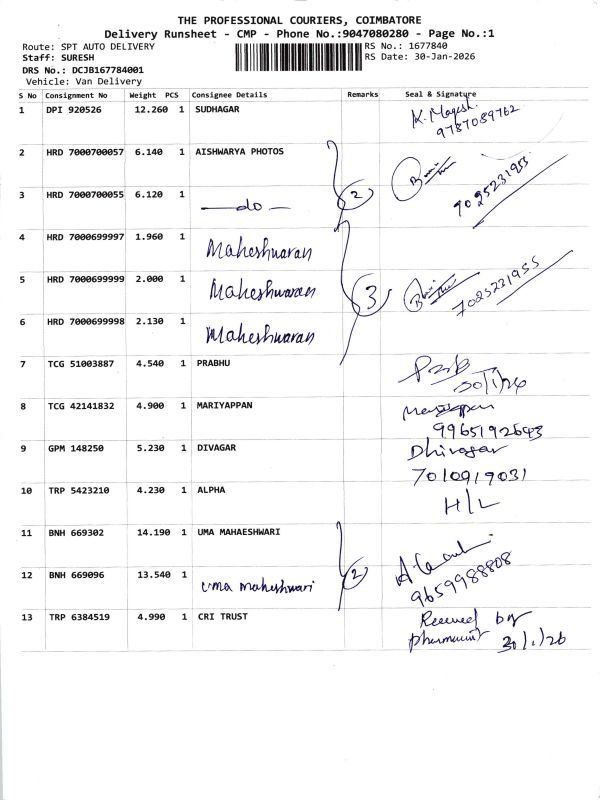 THE PROFESSIONAL COURIERS, COIMBATORE
Delivery Runsheet - CMP - Phone No.:9047080280 - Page No.:1
Route: SPT AUTO DELIVERY
RS No.: 1677840
Staff: SURESH
RS Date: 30-Jan-2026
DRS No.: DCJB167784001
Vehicle: Van Delivery
S No Consignment No Weight PCS Consignee Details Remarks Seal & Signature
1 DPI 920526 12.260 1 SUDHAGAR K. Magesh. 9787089762
2 HRD 7000700057 6.140 1 AISHWARYA PHOTOS
3 HRD 7000700055 6.120 1 —do— 2 7025231955
4 HRD 7000699997 1.960 1 Maheshwaran
5 HRD 7000699999 2.000 1 Maheshwaran 3 7025231955
6 HRD 7000699998 2.130 1 Maheshwaran
7 TCG 51003887 4.540 1 PRABHU 30/1/26
8 TCG 42141832 4.900 1 MARIYAPPAN Mariyappan 9965192643
9 GPM 148250 5.230 1 DIVAGAR Dhivagar 7010919031
10 TRP 5423210 4.230 1 ALPHA H/L
11 BNH 669302 14.190 1 UMA MAHAESHWARI
12 BNH 669096 13.540 1 Uma maheshwari 2 9659988808
13 TRP 6384519 4.990 1 CRI TRUST Received by
30/1/26